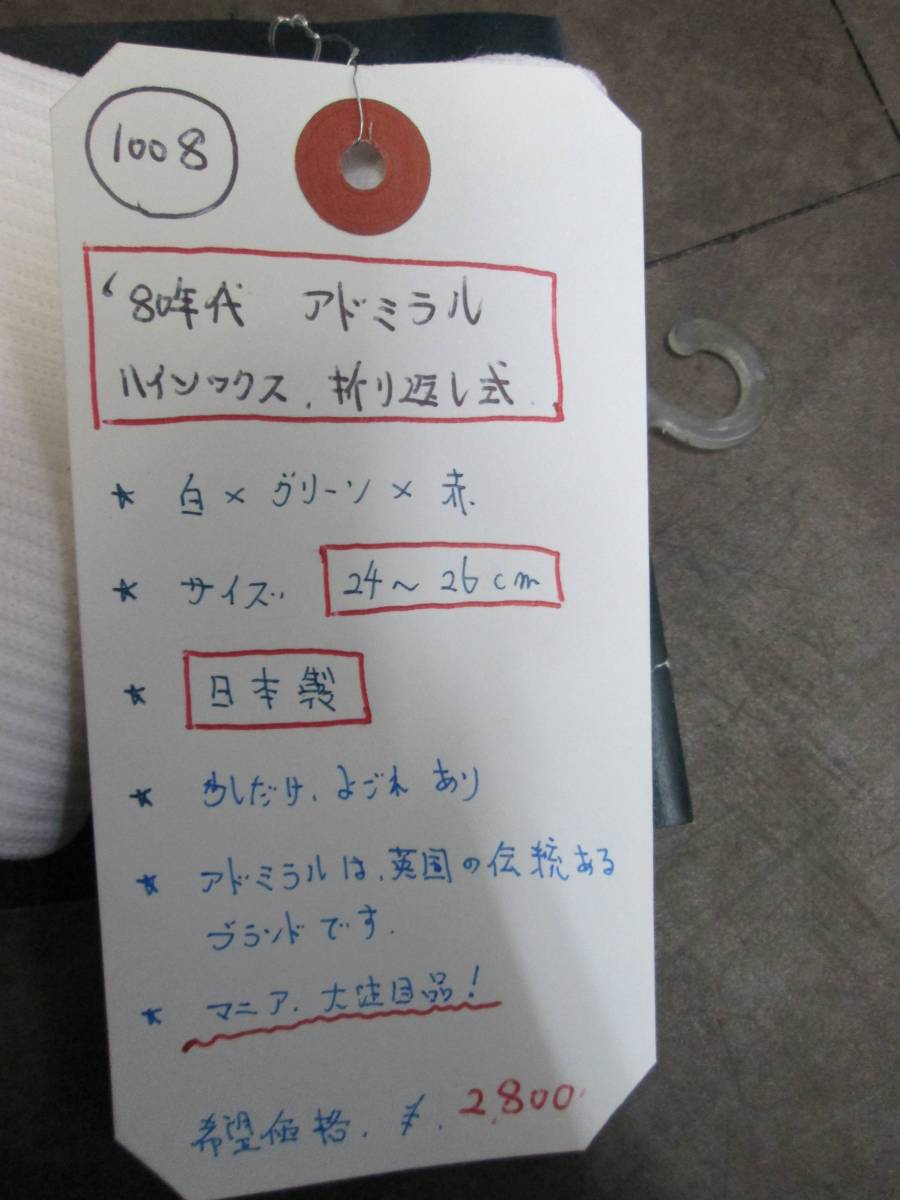 1008
'80年代 アドミラル
ハイソックス、折り返し式
★ 白×グリーン×赤
★ サイズ、 24〜26cm
★ 日本製
★ 少しだけ、よごれ あり
★ アドミラルは、英国の伝統ある
ブランドです.
★ マニア、大注目品!
希望価格、¥. 2,800.